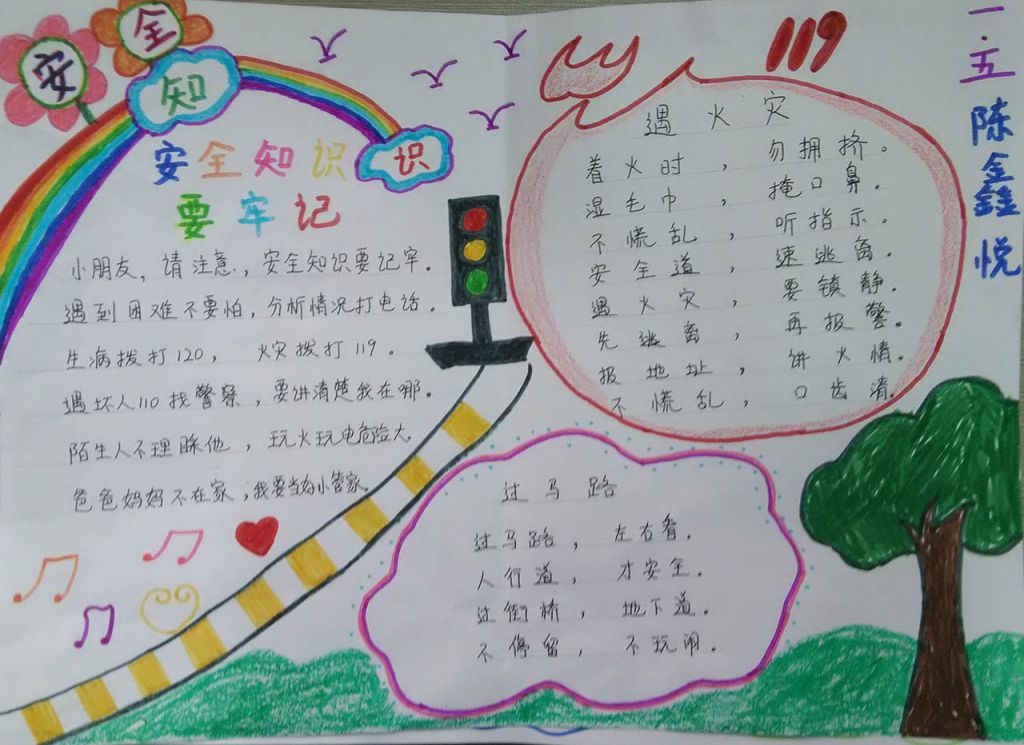 安全知识
安全知识
要牢记
小朋友，请注意，安全知识要记牢。
遇到困难不要怕，分析情况打电话。
生病拨打120，火灾拨打119。
遇坏人110找警察，要讲清楚我在哪。
陌生人不理睬他，玩火玩电危险大
爸爸妈妈不在家，我要当好小管家
119
遇火灾
着火时，勿拥挤。
湿毛巾，掩口鼻。
不慌乱，听指示。
安全道，速逃离。
遇火灾，要镇静。
先逃离，再报警。
报地址，讲火情。
不慌乱，口齿清。
过马路
过马路，左右看。
人行道，才安全。
过街桥，地下道。
不停留，不玩闹。
一.五
陈鑫悦